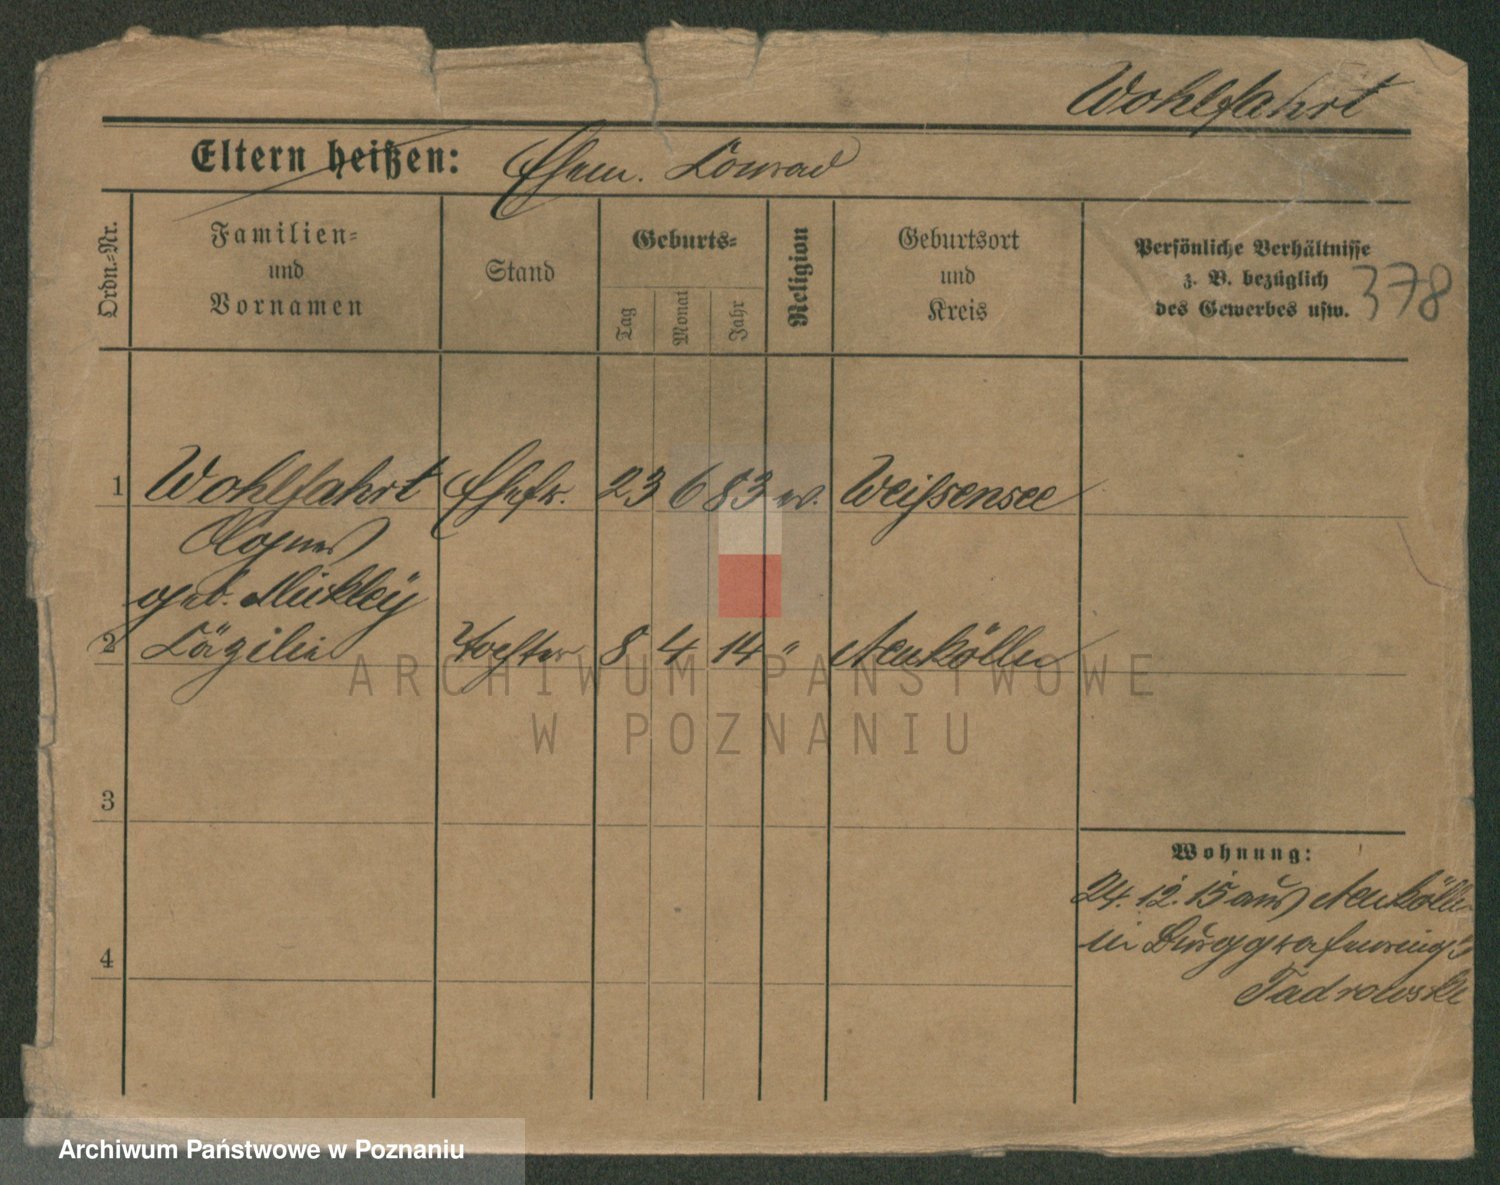 Wohlfahrt
Eltern heißen: Ehem. Conrad
Ordn.-Nr.
Familien-
und
Vornamen
Stand
Geburts-
Tag
Monat
Jahr
Religion
Geburtsort
und
Kreis
Persönliche Verhältnisse
z. B. bezüglich
des Gewerbes usw.
378
1 Wohlfahrt Ehefr. 23 6 83 ev. Weißensee
Agnes
geb. Mükley
2 Cäzilie Tochter 8 4 14 " Neukölln
3
4
Wohnung:
24. 12. 15 aus Neukölln
in Burggrafenring
Tadrowski
ARCHIWUM PAŃSTWOWE
W POZNANIU
Archiwum Państwowe w Poznaniu